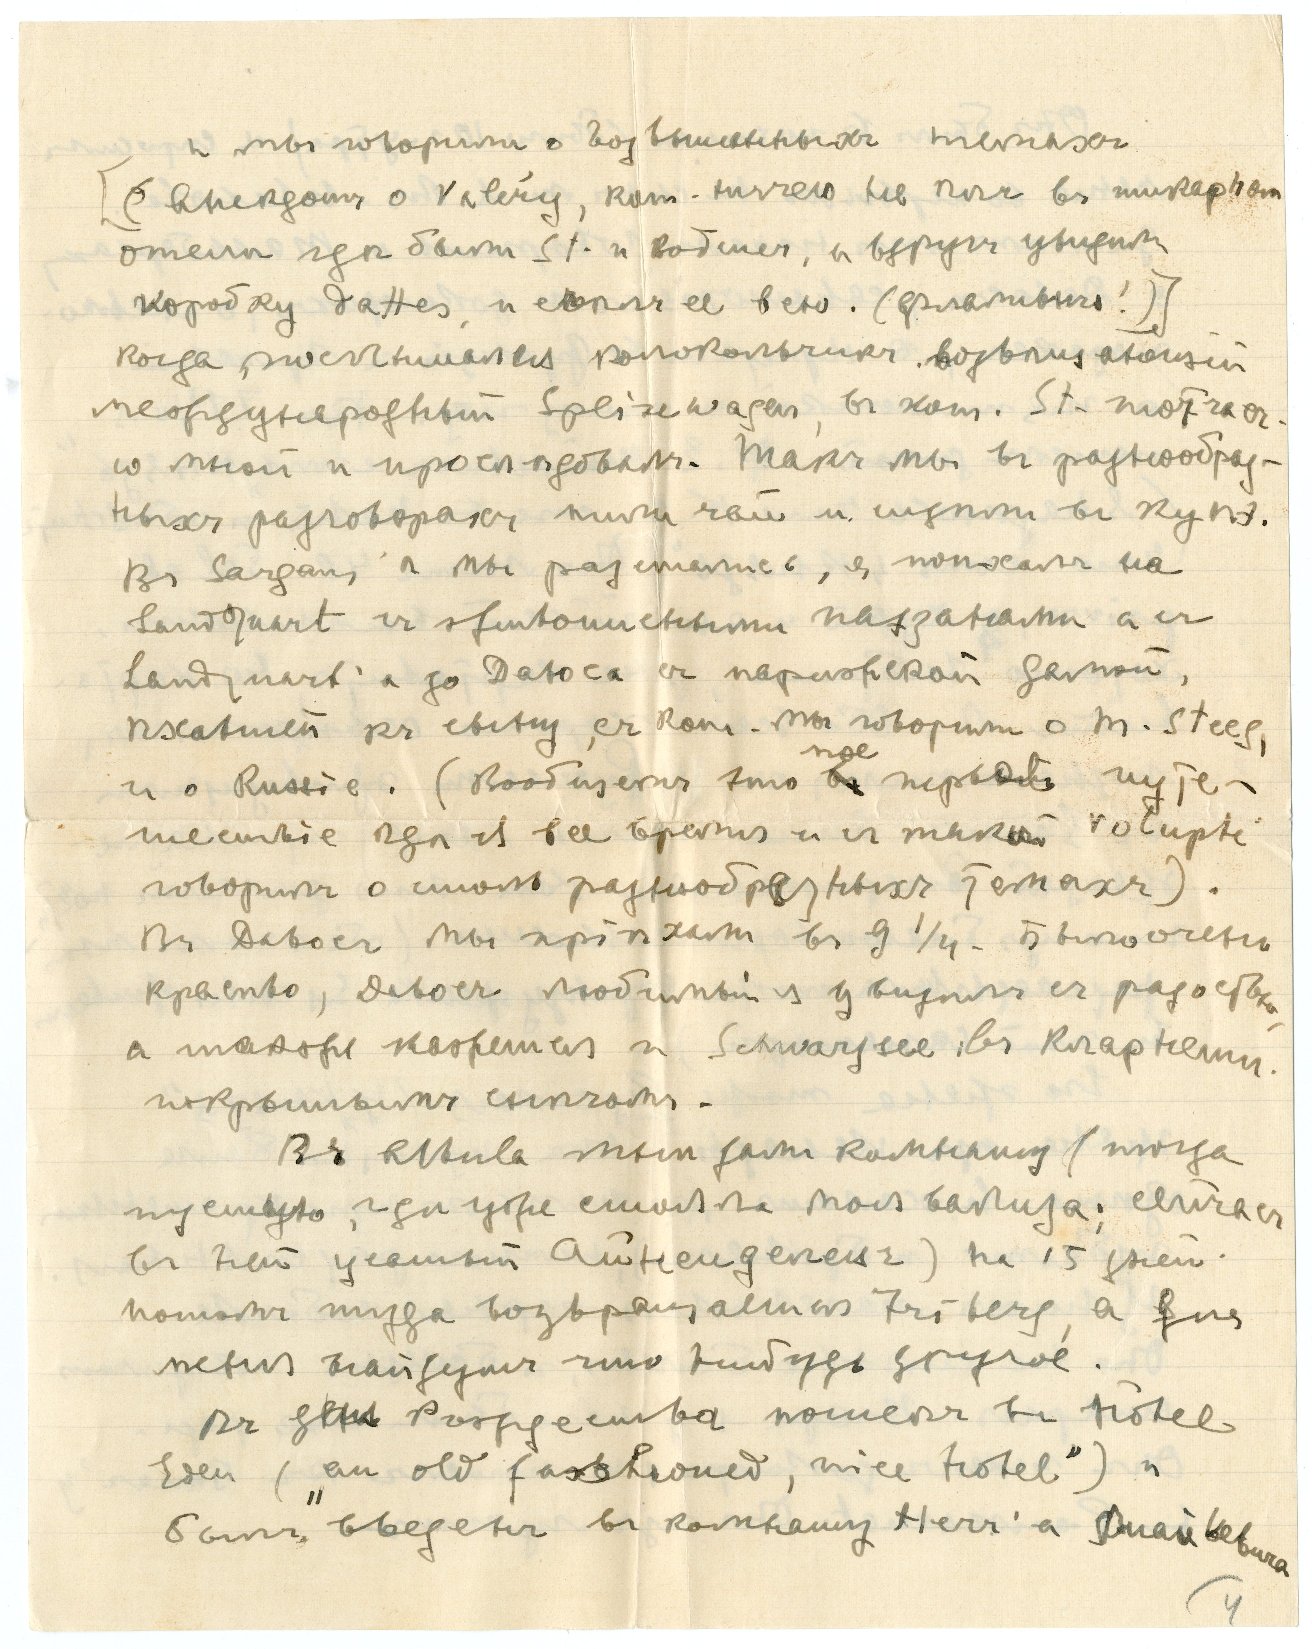 и мы говорили о возвышенныхъ темахъ
[(Анекдотъ о Valéry, кот. ничего не пилъ въ шикарном
отели гдѣ были St. и вобщее, и вдругъ увидѣлъ
коробку Dattes, и съѣлъ ее всю. (финтьинъ!)]
когда послышался колокольчикъ возвѣщающій
международный Speisewagen, въ кот. St. тотчасъ
со мной и прослѣдовалъ. Такъ мы въ разнообраз-
ныхъ разговорахъ пили чай и сидѣли въ купэ.
Въ Sargans'ѣ мы разстались, я поѣхалъ на
Landquart съ лѣ пѣзанами а съ
Landquart'а до Давоса съ парижской дамой,
ѣхавшей къ сыну, съ кот. мы говорили о M. Steeg,
и о Russie. (Вообщемъ это первое путе-
шествіе гдѣ я все время и съ такой volupté
говорилъ о столь разнообразныхъ темахъ).
Въ Давосъ мы пріѣхали въ 9 1/4. Было очень
красиво, Давосъ любимый я увидѣлъ съ радостью,
а также кажется и Schwarzsee, въ Кларнелли.
покрытымъ снѣгомъ.
Въ Albula мнѣ дали комнату (тогда
пустую, гдѣ уже стояла моя вализа; сейчасъ
въ ней усатый Айненгелекъ) на 15 дней.
потомъ туда возвращается Friberg, а для
меня найдутъ что нибудь другое.
Въ день Рождества пошелъ въ Hôtel
Eden („an old fashioned, nice hotel") и
былъ введенъ въ комнату Herr'а
(4